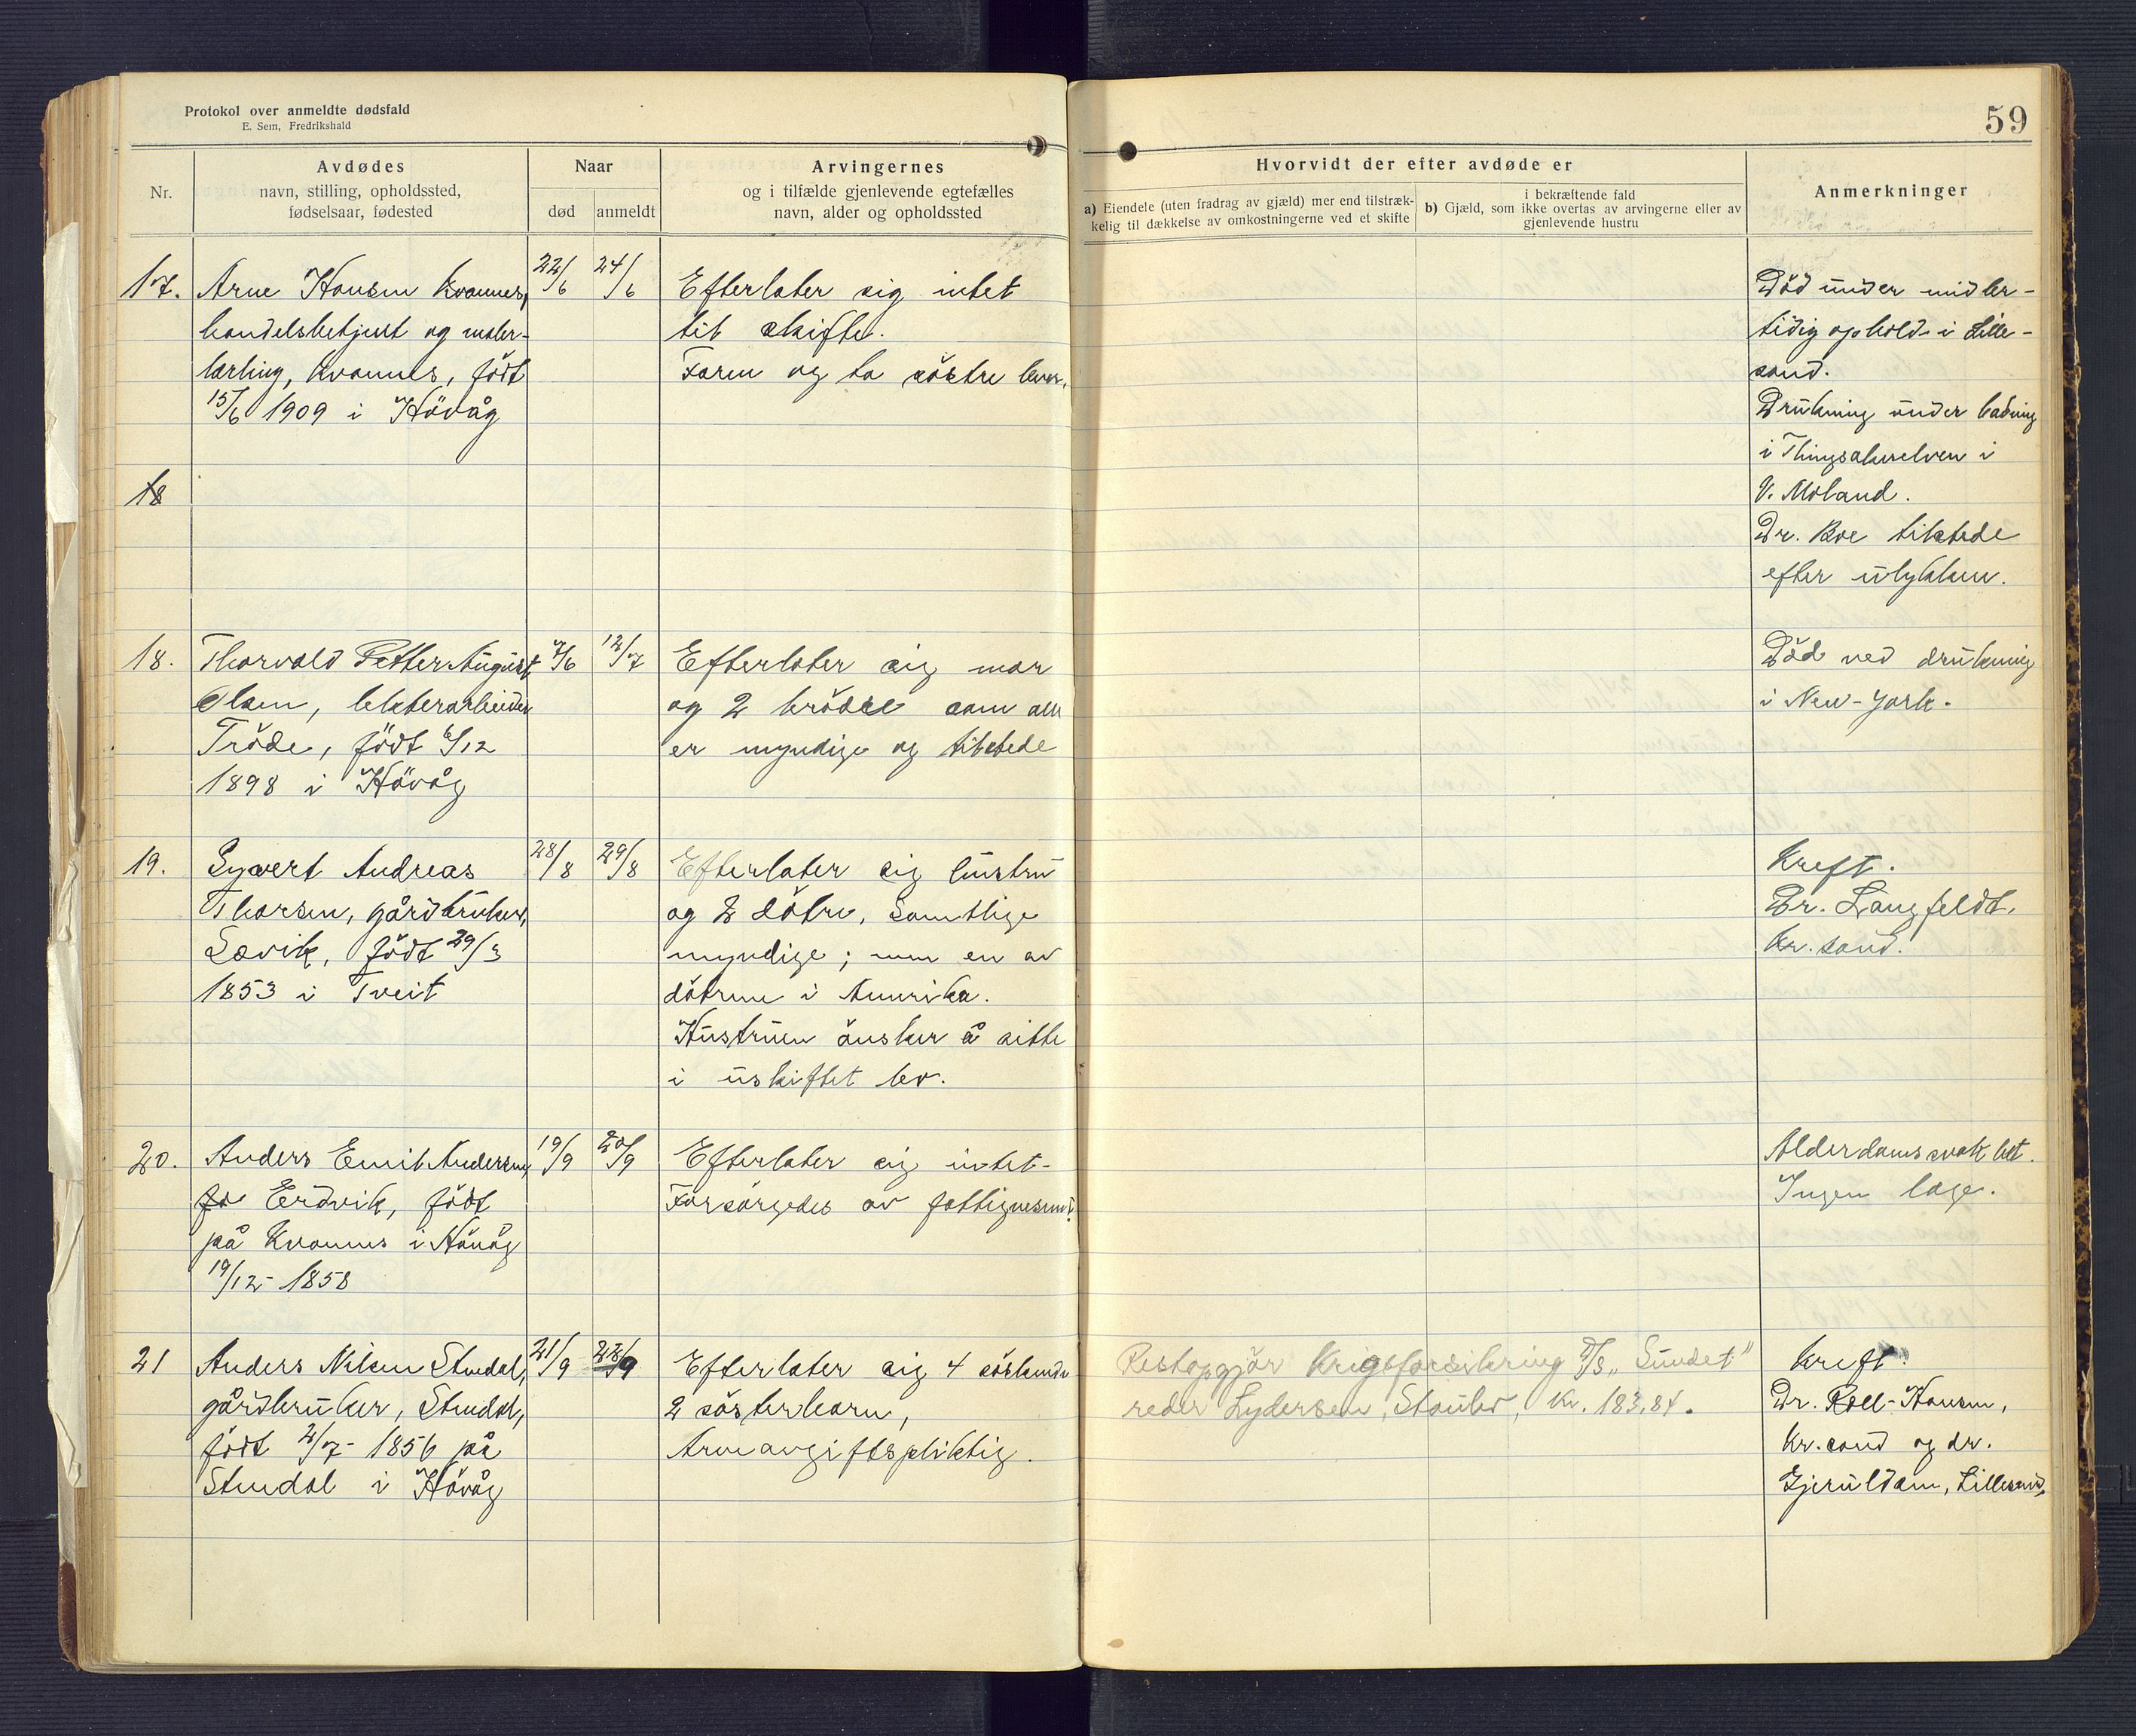 Protokol over anmeldte dødsfald
E. Sem, Fredrikshald
59
Nr.
Avdødes
navn, stilling, opholdssted,
fødselsaar, fødested
Naar
død
anmeldt
Arvingernes
og i tilfælde gjenlevende egtefælles
navn, alder og opholdssted
Hvorvidt der efter avdøde er
a) Eiendele (uten fradrag av gjæld) mer end tilstræk-
kelig til dækkelse av omkostningerne ved et skifte
i bekræftende fald
b) Gjæld, som ikke overtas av arvingerne eller av
gjenlevende hustru
Anmerkninger
17.
Arne Hansen Kvannes,
handelsbetjent og maler-
lærling, Kvannes, født
15/6 1909 i Høvåg
22/6
24/6
Efterlater sig intet
til skifte.
Faren og to søstre lever.
Död under midler-
tidig ophold i Lille-
sand.
Drukning under bading
i Thingsakerelven i
V. Moland.
Dr. Boe tilstede
efter ulykken.
18
18.
Thorvald Petter August
Olsen, lekterarbeider
Tröde, födt 6/12
1898 i Hövåg
7/6
12/7
Efterlater sig mor
og 2 brödre som alle
er myndige og tilstede
Död ved drukning
i New-York.
19.
Syvert Andreas
Thorsen, gårdbruker,
Sævik, födt 29/3
1853 i Tveit
28/8
29/8
Efterlater sig hustru
og 2 dötre, samtlige
myndige; men en av
dötrene i Amerika.
Hustruen önsker å sitte
i uskiftet bo.
Kreft.
Dr. Langfeldt,
Kr.sand.
20.
Anders Emil Andersen,
Eidvik, födt
på Kvannes i Hövåg
19/12- 1858
19/9
20/9
Efterlater sig intet-
Forsörgedes av fattigvesenet.
Alderdomssvakhet.
Ingen læge.
21
Anders Nilsen Stendal,
gårdbruker, Stendal,
födt 2/7- 1856 på
Stendal i Hövåg
21/9
22/9
Efterlater sig 4 söskende
2 sösterbarn,
Arveavgiftspliktig.
Restopgjör Krigsforsikring D/S „Sundet"
reder Lydersen, Staubö, Kr. 183,84.
Kreft.
Dr. Roll-Hansen,
Kr.sand og dr.
Gjeruldsen, Lillesand.